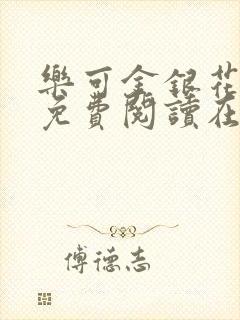 樂可金銀花
免費閱讀在
傅德志